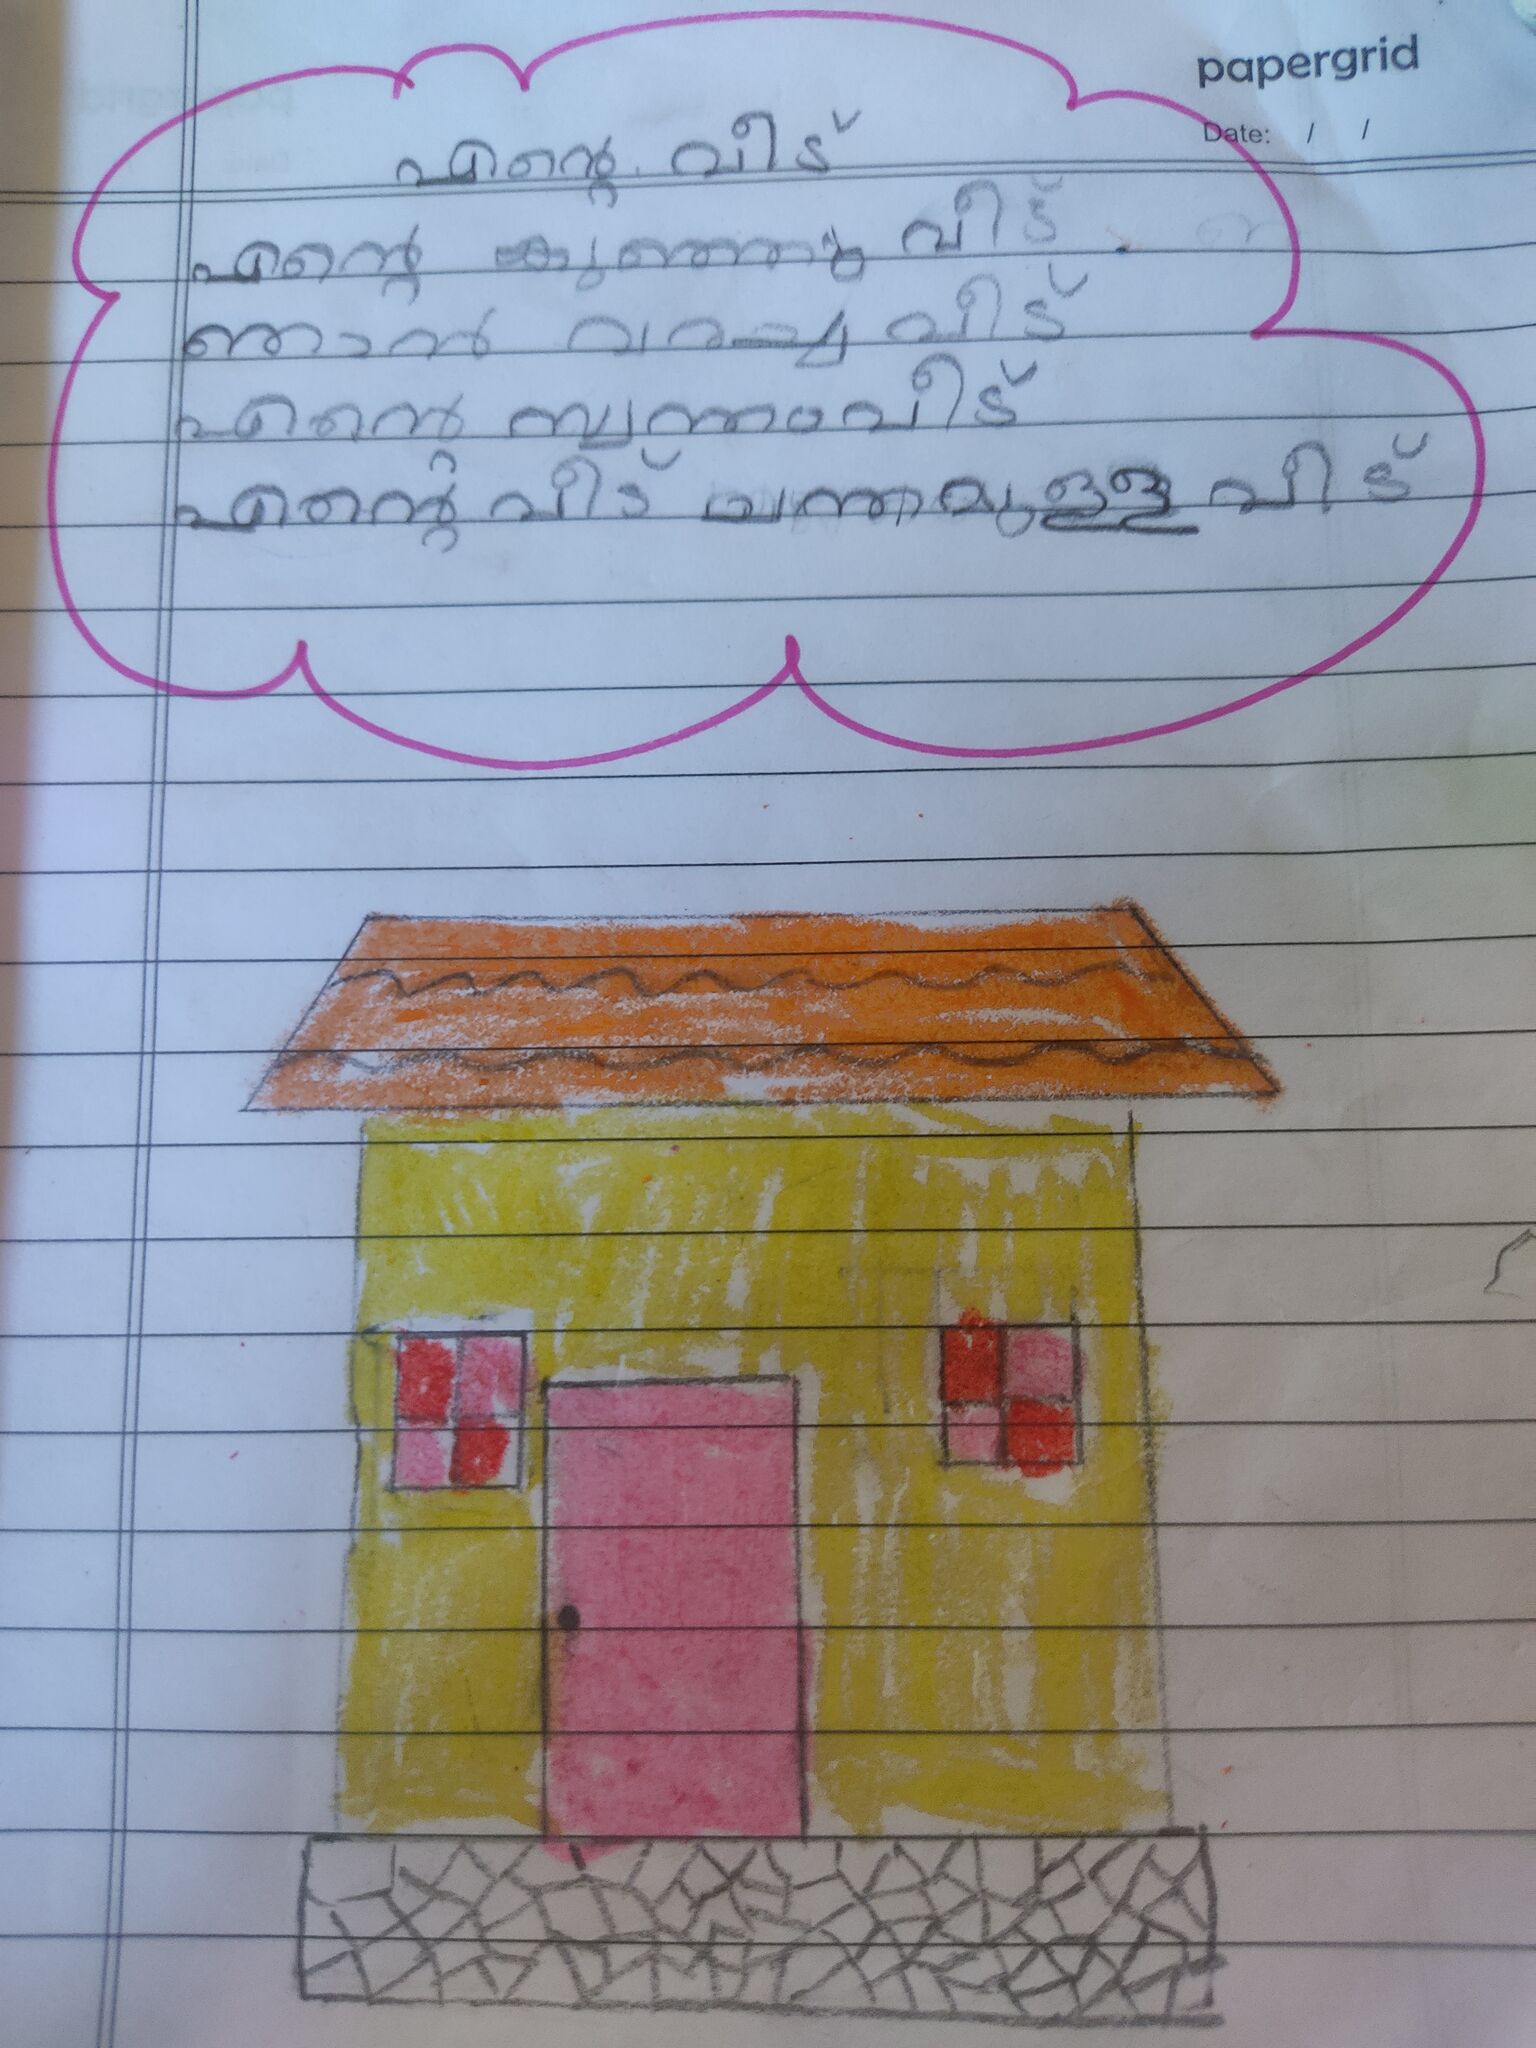 papergrid
Date: / /
എന്റെ വീട്
എന്റെ കുഞ്ഞു വീട്
ഞാൻ വരച്ച വീട്
എന്റെ സ്വന്തം വീട്
എന്റെ വീട് ചന്തമുള്ള വീട്